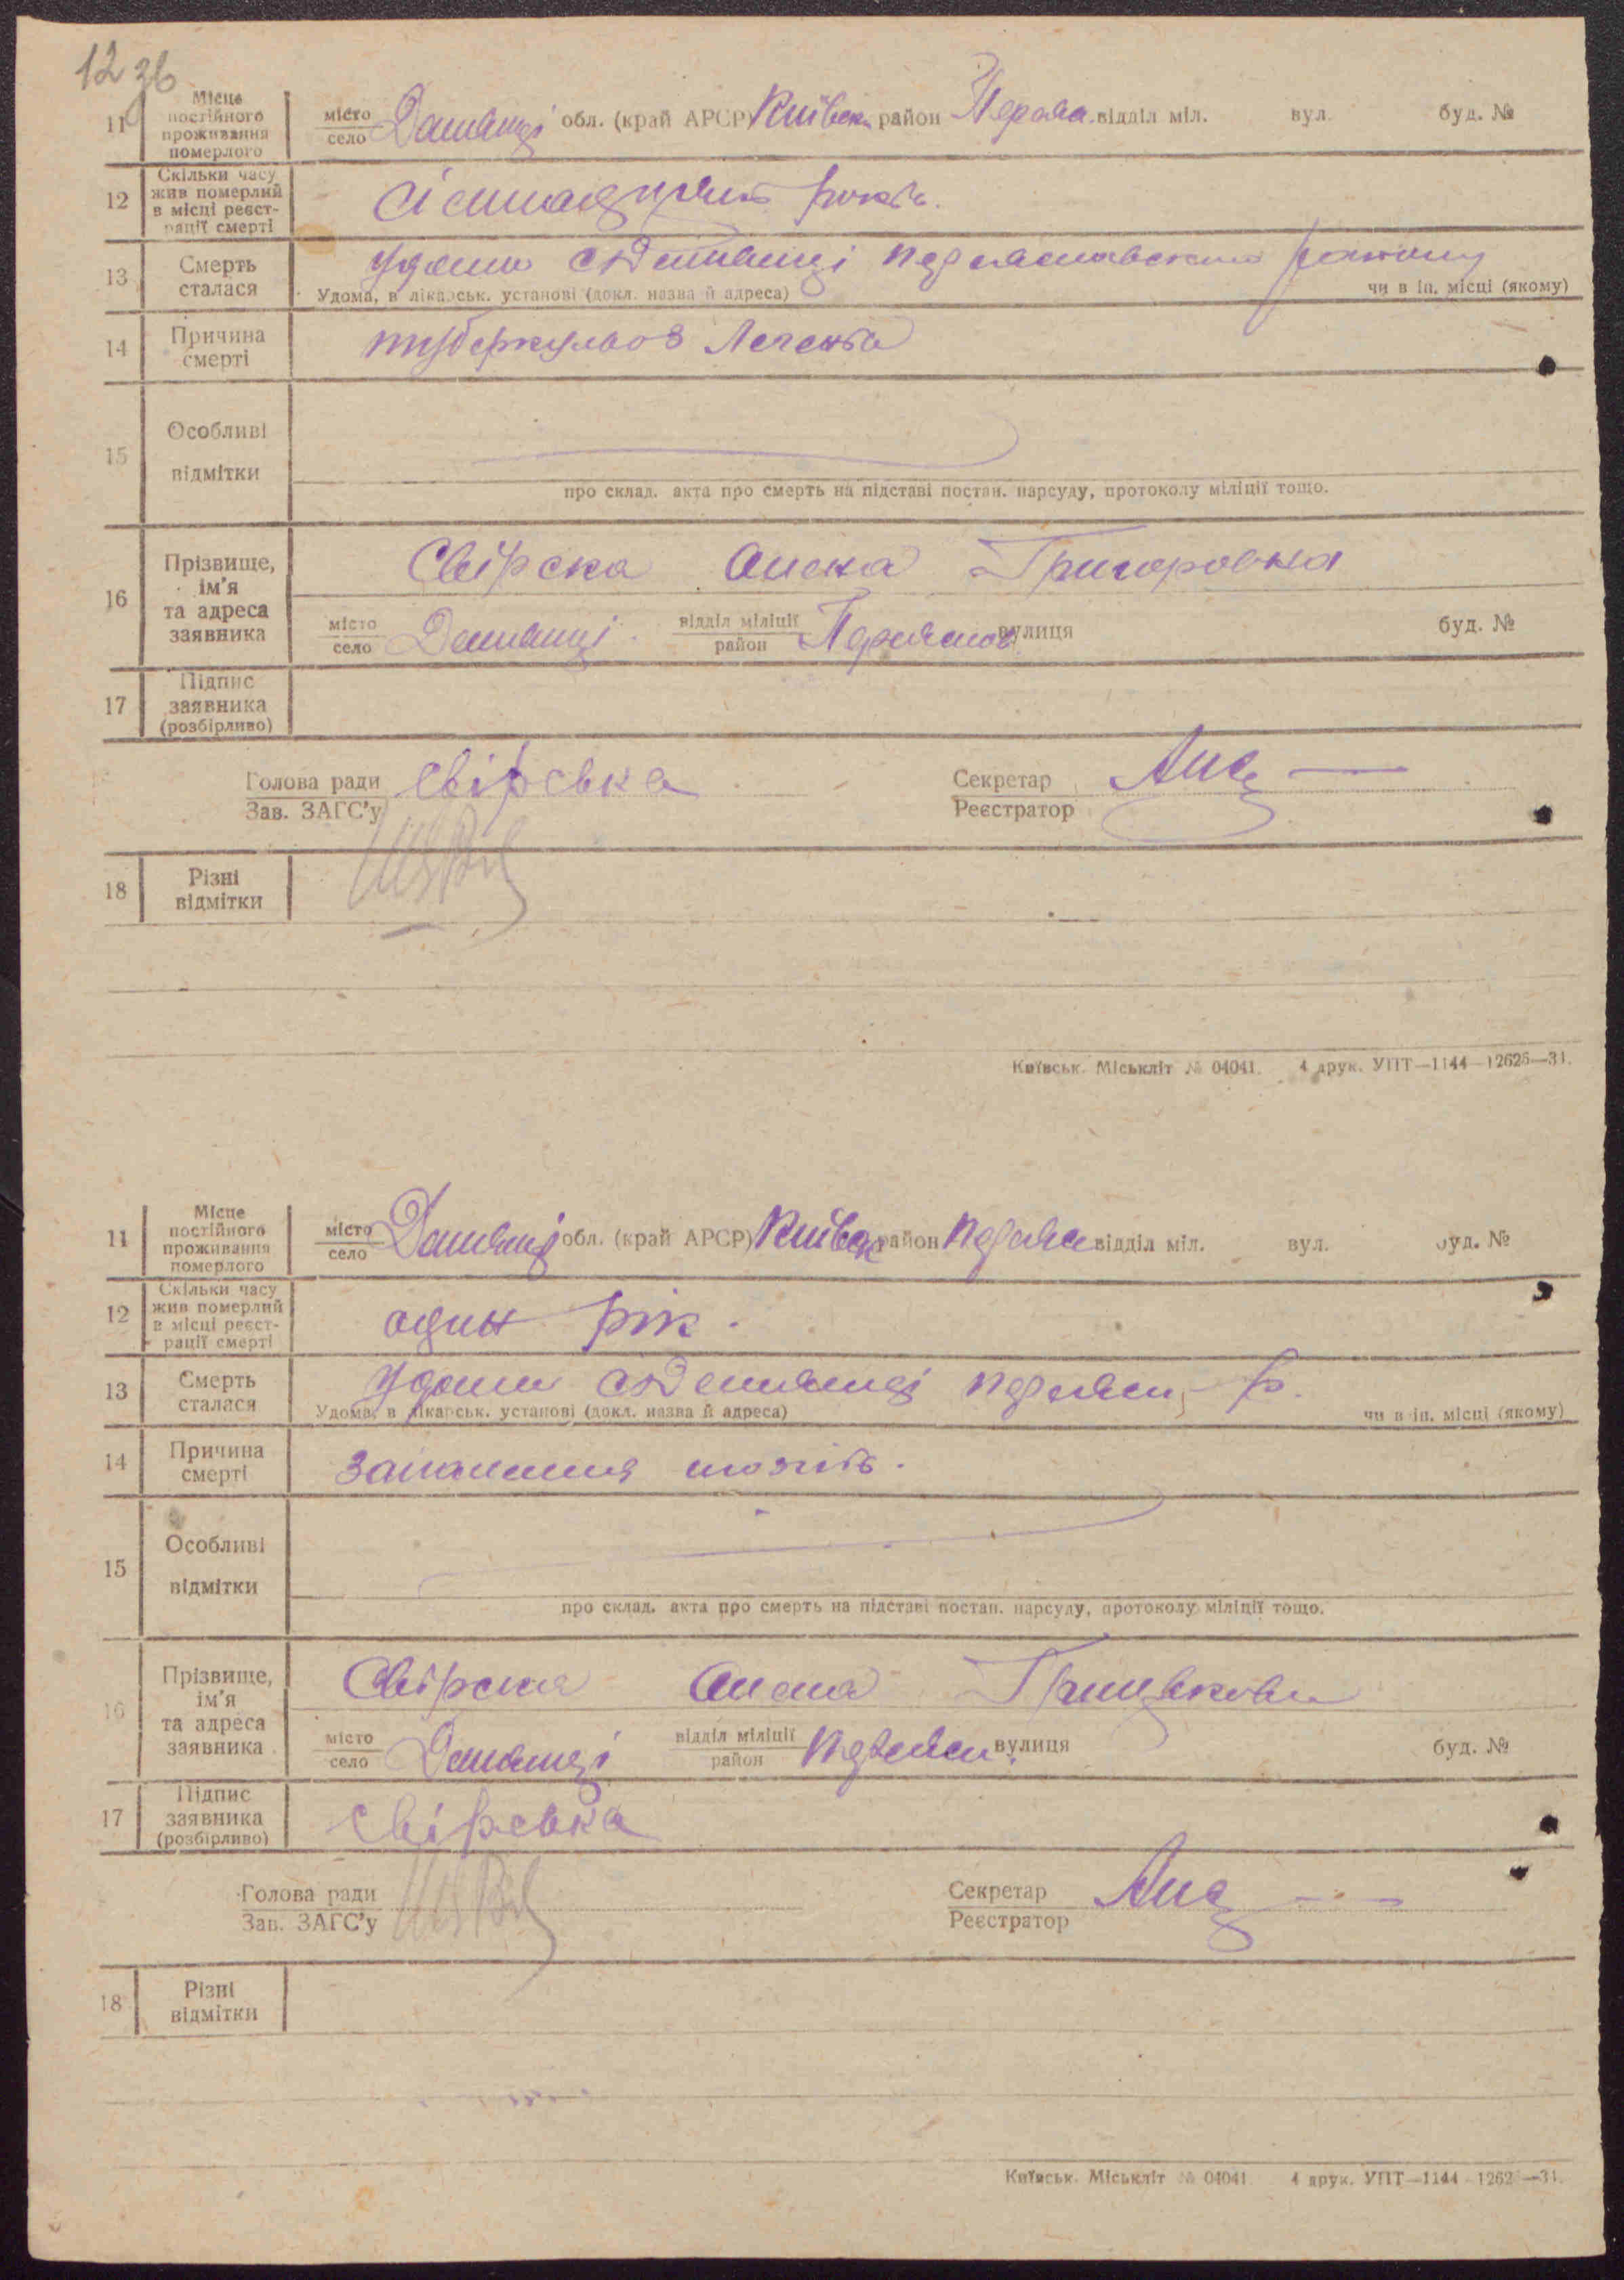 12 36
11 Місце постійного проживання померлого місто село Демянці обл. (край АРСР) Київськ район Переяс. відділ міл. вул. буд. №
12 Скільки часу жив померлий в місці реєстрації смерті сімнадцять років.
13 Смерть сталася удома с Демянці Переяславського району
Удома, в лікарськ. установі (докл. назва й адреса) чи в ін. місці (якому)
14 Причина смерті туберкульоз Легенів
15 Особливі відмітки
про склад. акта про смерть на підставі постан. нарсуду, протоколу міліції тощо.
16 Прізвище, ім'я та адреса заявника Свірска Григоровна
місто село Демянці відділ міліції район Переяслов вулиця буд. №
17 Підпис заявника (розбірливо)
Голова ради Зав. ЗАГС'у свірська Секретар Реєстратор
18 Різні відмітки
Київськ. Міськліт № 04041. 4 друк. УПТ—1144—12625—31.
11 Місце постійного проживання померлого місто село Демянці обл. (край АРСР) Київськ район Переяс відділ міл. вул. буд. №
12 Скільки часу жив померлий в місці реєстрації смерті один рік.
13 Смерть сталася удома с Демянці Переяс, р.
Удома, в лікарськ. установі (докл. назва й адреса) чи в ін. місці (якому)
14 Причина смерті запалення мозгів.
15 Особливі відмітки
про склад. акта про смерть на підставі постан. нарсуду, протоколу міліції тощо.
16 Прізвище, ім'я та адреса заявника Свірска
місто село Демянці відділ міліції район Переяс. вулиця буд. №
17 Підпис заявника (розбірливо) свірська
Голова ради Зав. ЗАГС'у Секретар Реєстратор
18 Різні відмітки
Київськ. Міськліт № 04041 4 друк. УПТ—1144—1262 —31.